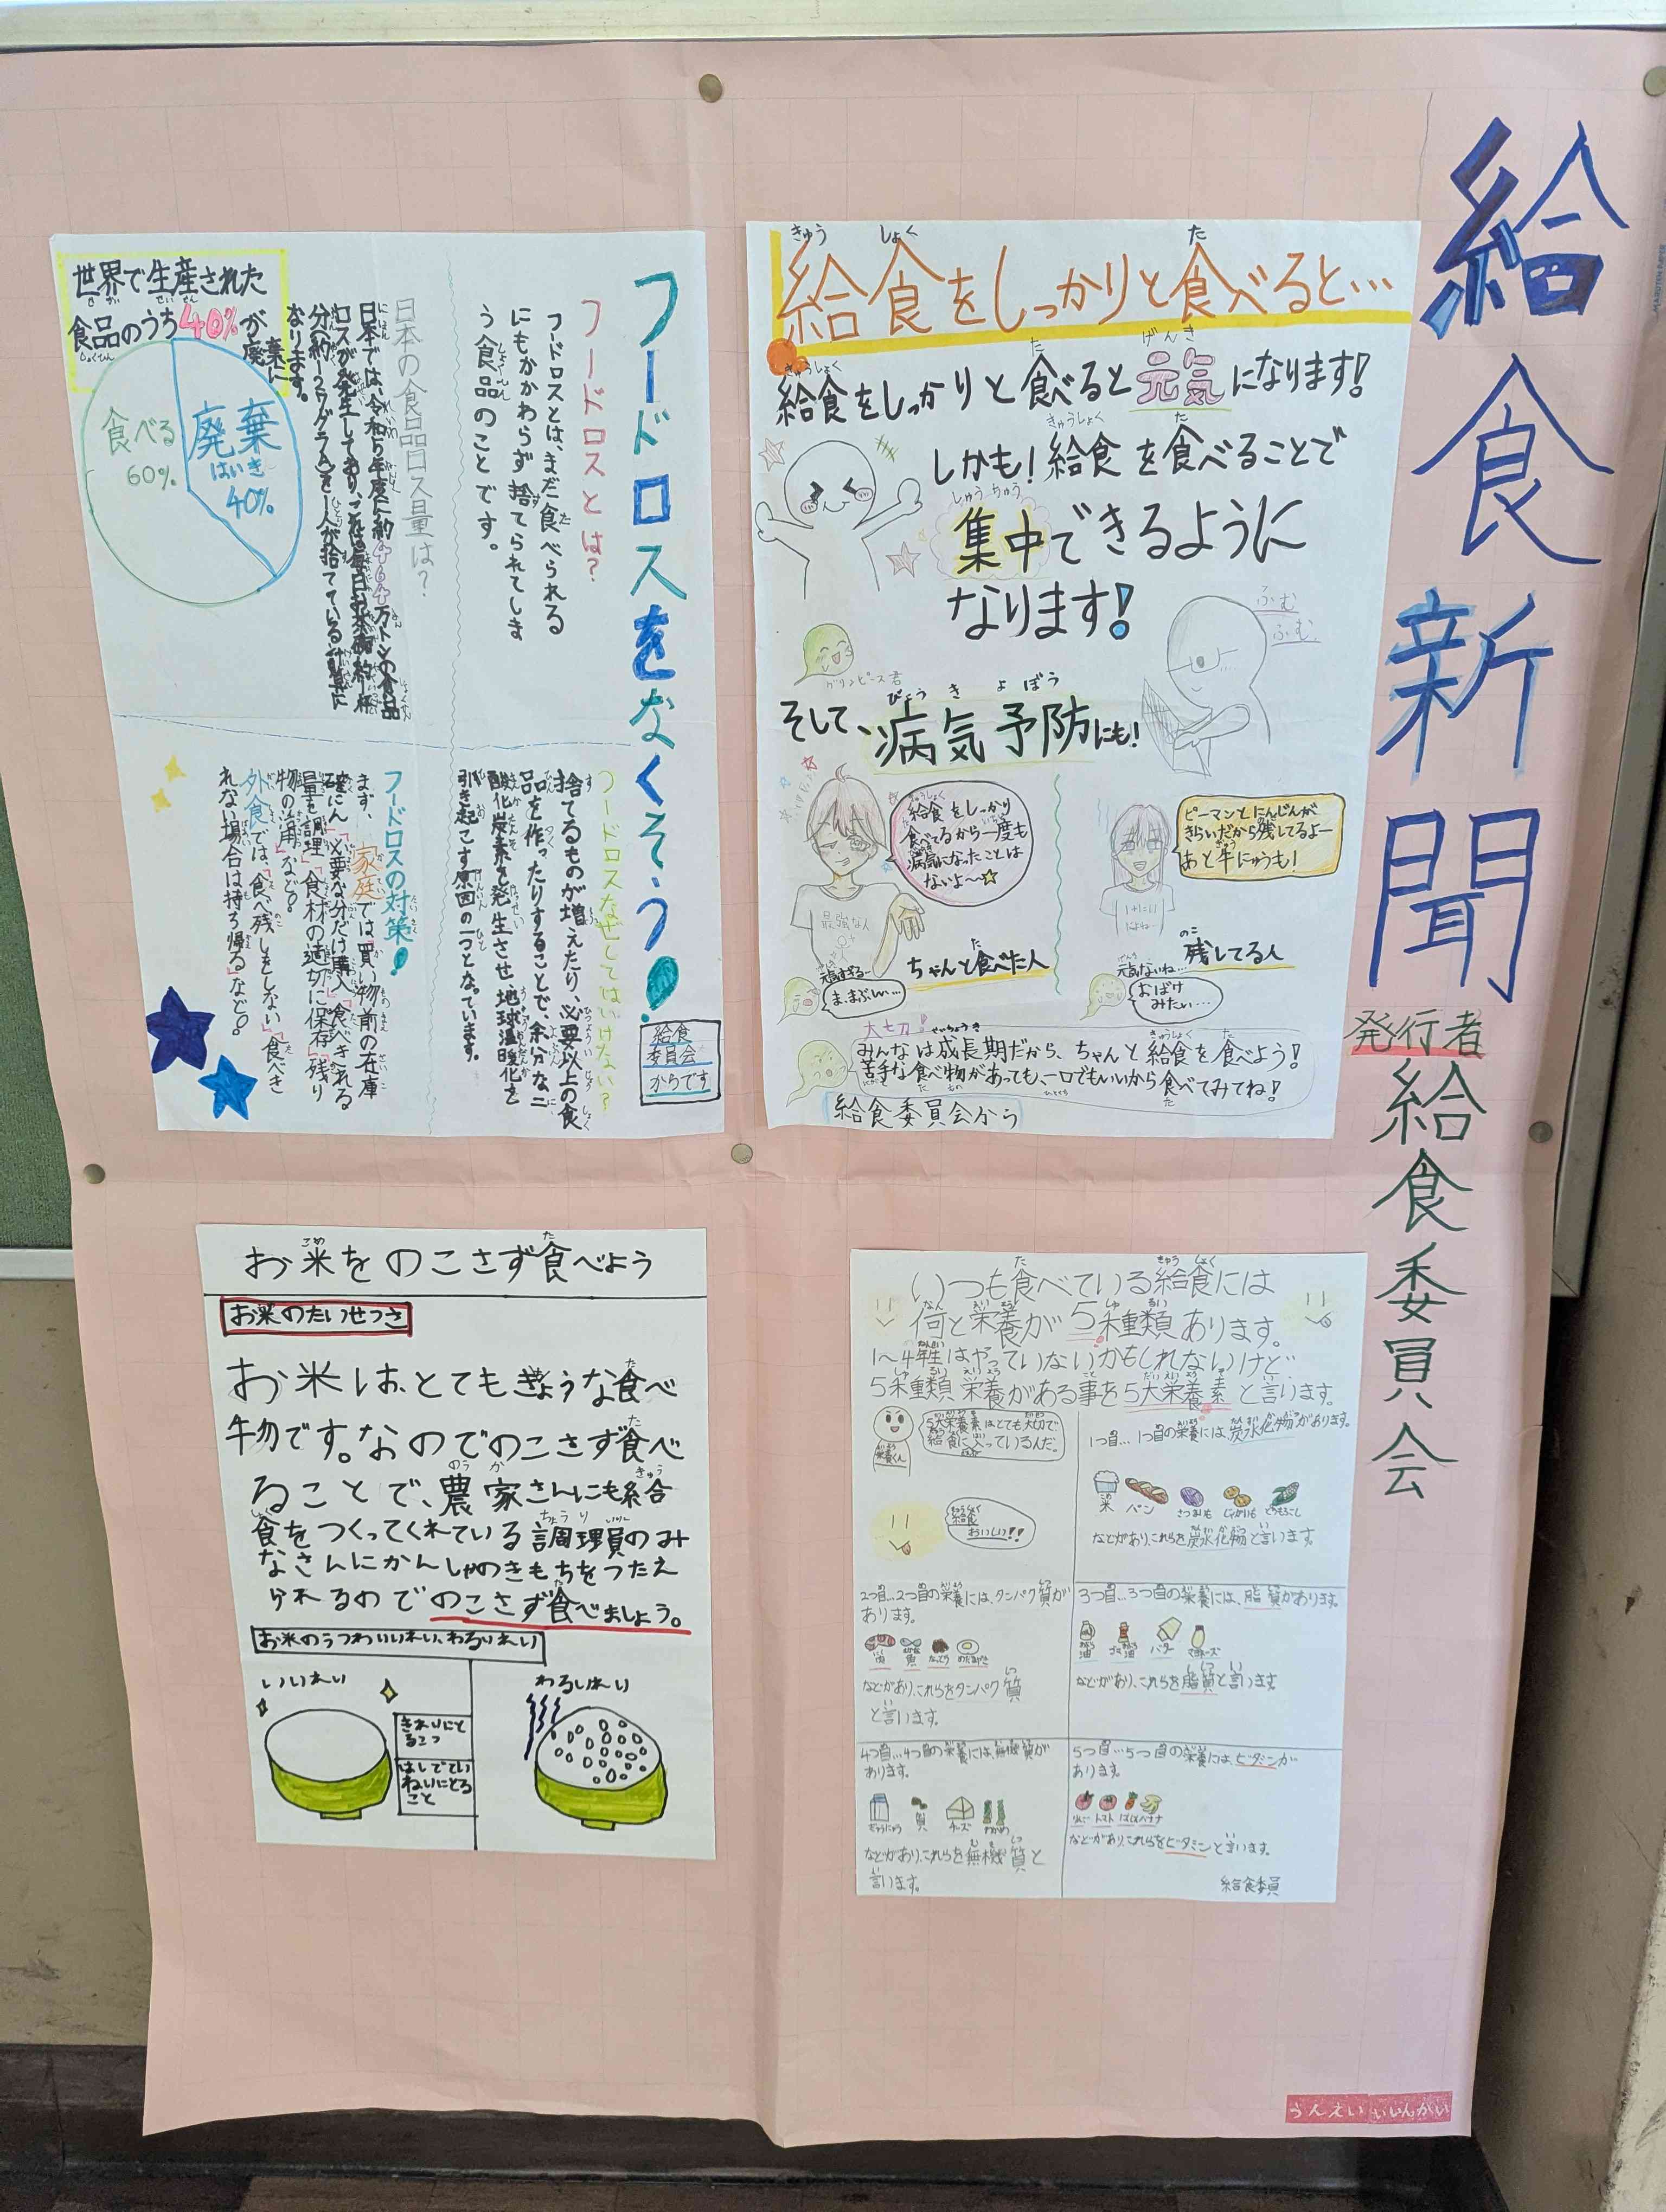 給食新聞
発行者 給食委員会
給食をしっかりと食べると…
給食をしっかりと食べると元気になります!
しかも!給食を食べることで
集中できるように
なります!
ふむ
ふむ
グリンピース君
そして、病気予防にも!
給食をしっかり
食べてるから一度も
病気になったことは
ないよ〜☆
ピーマンとにんじんが
きらいだから残してるよー
あと牛にゅうも!
最強な人
ちゃんと食べた人
残してる人
ま、まぶしい…
元気ないね…
おばけ
みたい…
大切!
みんなは成長期だから、ちゃんと給食を食べよう!
苦手な食べ物があっても、一口でもいいから食べてみてね!
給食委員会から
フードロスをなくそう!
給食
委員会
からです
フードロスとは?
フードロスとは、まだ食べられる
にもかかわらず捨てられてしま
う食品のことです。
日本の食品ロス量は?
日本では、令和5年度に約464万トンの食品
ロスが発生しており、これは毎日お茶碗約一杯
分を一人が捨てている計算に
なります。
世界で生産された
食品のうち40%が廃棄に
廃棄
はいき
40%
食べる
60%
フードロスなぜしてはいけない?
捨てるものが増えたり、必要以上の食
品を作ったりすることで、余分な二
酸化炭素を発生させ、地球温暖化を
引き起こす原因の一つとなっています。
フードロスの対策!
まず、家庭では「買い物前の在庫
確にん」「必要な分だけ購入」「食べきれる
量を調理」「食材の適切に保存」「残り
物の活用」など。
外食では、「食べ残しをしない」「食べき
れない場合は持ち帰る」など。
お米をのこさず食べよう
お米のたいせつさ
お米は、とてもきちょうな食べ
物です。なのでのこさず食べ
ることで、農家さんにも給
食をつくってくれている調理員のみ
なさんにかんしゃのきもちをつたえ
られるのでのこさず食べましょう。
お米のうつわいいれい、わるいれい
いいれい
きれいにと
るこつ
はしでてい
ねいにとる
こと
わるいれい
いつも食べている給食には
何と栄養が5種類あります。
1〜4年生はやっていないかもしれないけど、
5種類栄養がある事を5大栄養素と言います。
栄養くん
5大栄養素はとても大切で
給食に入っているんだ。
給食
おいしい!!
1つ目…1つ目の栄養には、炭水化物があります。
米 パン さつまいも じゃがいも とうもろこし
などがあり、これらを炭水化物と言います。
2つ目…2つ目の栄養には、タンパク質が
あります。
肉 魚 なっとう めだまやき
などがあり、これらをタンパク質
と言います。
3つ目…3つ目の栄養には、脂質があります。
油 ゴマ油 バター マヨネーズ
などがあり、これらを脂質と言います。
4つ目…4つ目の栄養には、無機質が
あります。
ぎゅうにゅう 貝 チーズ わかめ
などがあり、これらを無機質と
言います。
5つ目…5つ目の栄養には、ビタミンが
あります。
りんご トマト にんじん バナナ
などがあり、これらをビタミンと言います。
給食委員
うんえいいいんかい